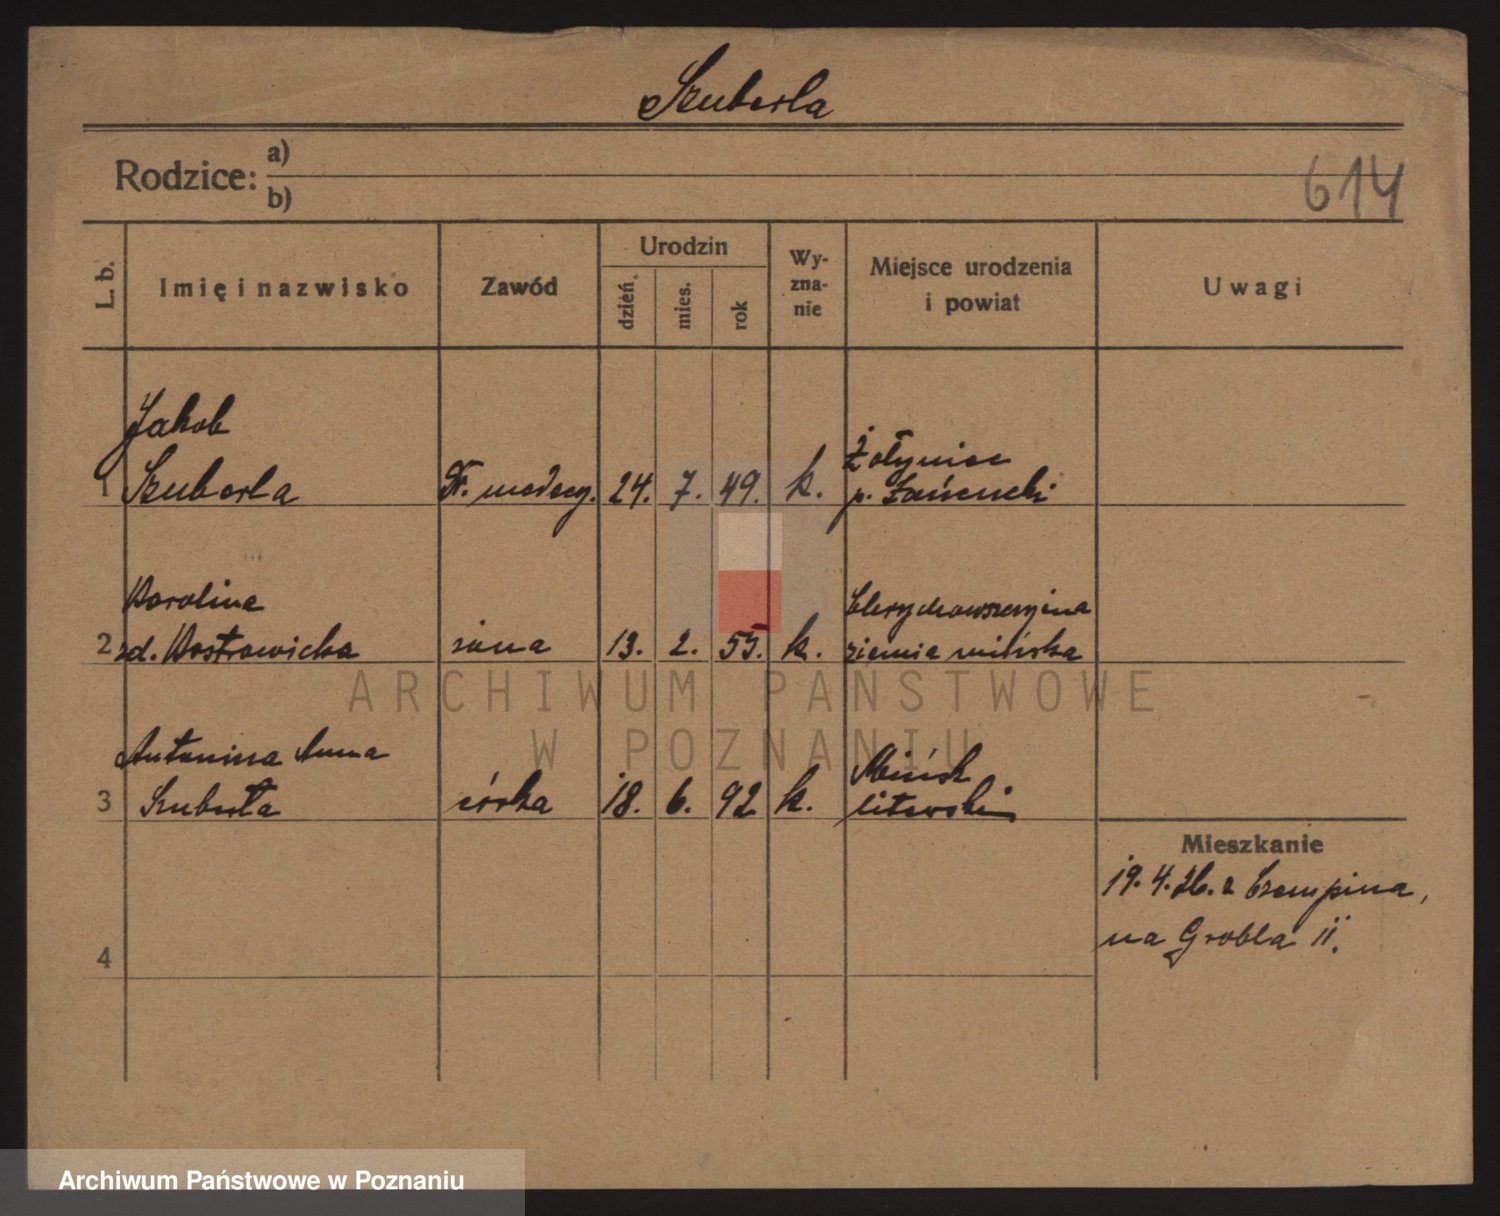 Szuberla
Rodzice: a)
b)
614
L. b.
Imię i nazwisko
Zawód
Urodzin
dzień.
mies.
rok
Wy-
zna-
nie
Miejsce urodzenia
i powiat
Uwagi
Jakob
1 Szuberla Dr. medecy. 24. 7. 49. k. Żołynice
p. Łańcucki
Karolina
2 zd. Kostrowicka żona 13. 2. 55. k.
ziemia mińska
Antonina Anna
3 Szuberla córka 18. 6. 92 k. Mińsk
litewski
Mieszkanie
19. 4. 26. z Czempina,
na Grobla 11.
4
ARCHIWUM PAŃSTWOWE
W POZNANIU
Archiwum Państwowe w Poznaniu